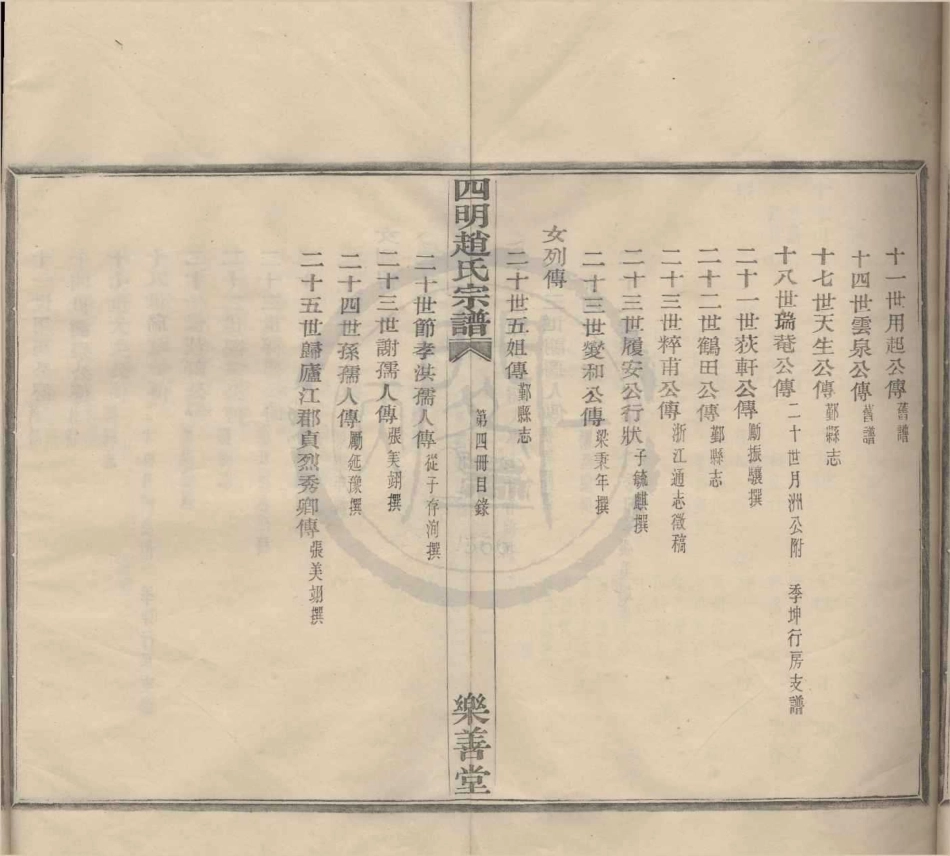 十一世用起公傳 舊譜
十四世雲泉公傳 舊譜
十七世天生公傳 鄞縣志
十八世瑞菴公傳 二十世月洲公附 季坤行房支譜
二十一世荻軒公傳 勵振驤撰
二十二世鶴田公傳 鄞縣志
二十三世粹甫公傳 浙江通志徵稿
二十三世履安公行狀 子毓麒撰
二十三世燮和公傳 梁秉年撰
女列傳
二十世五姐傳 鄞縣志
四明趙氏宗譜 第四冊目錄 樂善堂
二十世節孝洪孺人傳 從子存洵撰
二十三世謝孺人傳 張美翊撰
二十四世孫孺人傳 勵延豫撰
二十五世歸廬江郡貞烈秀卿傳 張美翊撰